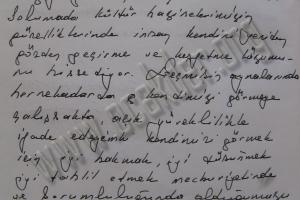 Solumada kültür hazinelerimizin
güzelliklerinde insan kendini yeniden
gözden geçirme ve keşfetme
nu hissediyor. Geçmişin aynalarında
her nekadarda kendimizi görmeye
çalışsakta, açık yüreklilikle
ifade edeyimki kendimizi görmek
için iyi bakmak, iyi düşünmek
iyi tahlil etmek mecburiyetinde
ve sorumluluğunda olduğumuzu